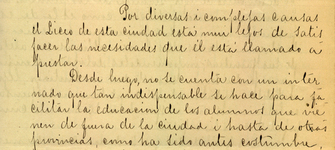 Por diversas i complejas causas
el Liceo de esta ciudad está mui lejos de satis
facer las necesidades que él está llamado a
prestar.
Desde luego, no se cuenta con un inter
nado que tan indispensable se hace para fa
cilitar la educacion de los alumnos que vie
nen de fuera de la ciudad i hasta de otras
provincias, como ha sido antes costumbre,